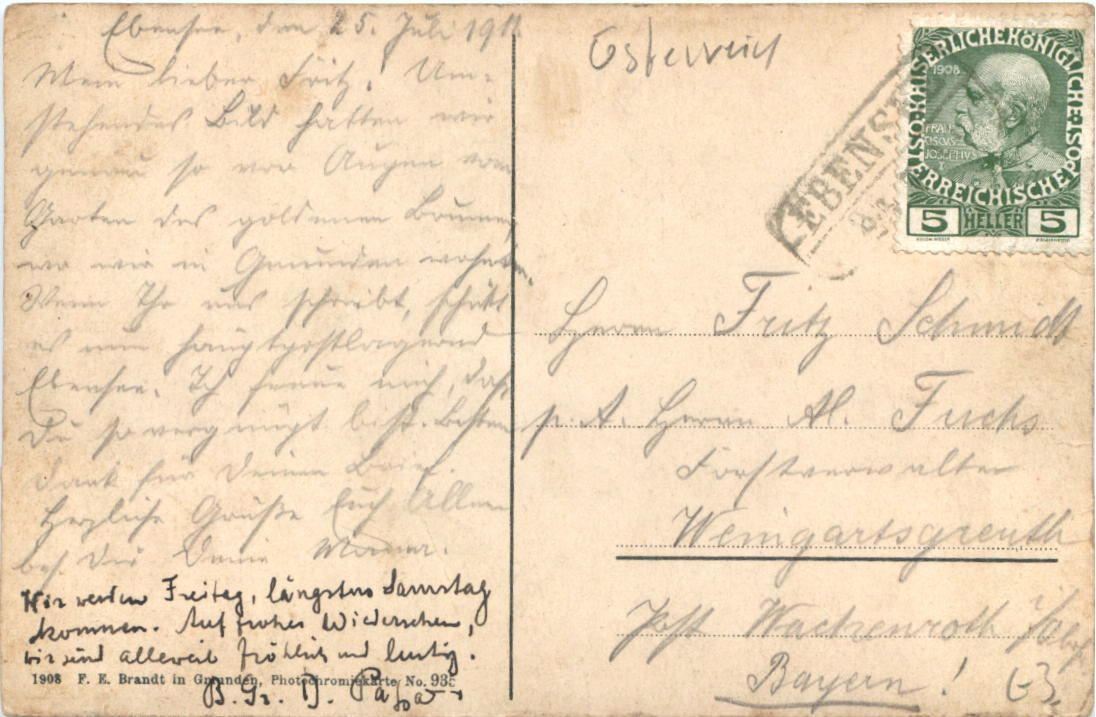 Ebensee, den 25. Juli 1911
Mein lieber Fritz! Um-
stehendes Bild hatten wir
genau so vor Augen vom
Garten des goldenen Brunnen,
wo wir in Gmunden wohnten.
Wenn Ihr uns schreibt, schickt
es nun hauptpostlagernd
Ebensee. Ich freue mich, daß
Du so vergnügt bist. Besten
Dank für Deinen Brief.
Herzliche Grüße Euch Allen
bes. Dir Deine Mama.
Wir werden Freitag, längstens Samstag
kommen. Auf frohes Wiedersehen,
wir sind alleweil fröhlich und lustig.
B. Gr. D. Papa
1908 F. E. Brandt in Gmunden, Photochromiekarte No. 935
Österreich
KAISERLICHE KÖNIGLICHE ÖSTERREICHISCHE POST
1908
FRAN
CISCVS
JOSEPHVS
I
5 HELLER 5
EBENSEE
Herrn Fritz Schmidt
p. A. Herrn Al. Fuchs
Forstverwalter
Weingartsgreuth
Post Wachenroth
Bayern!